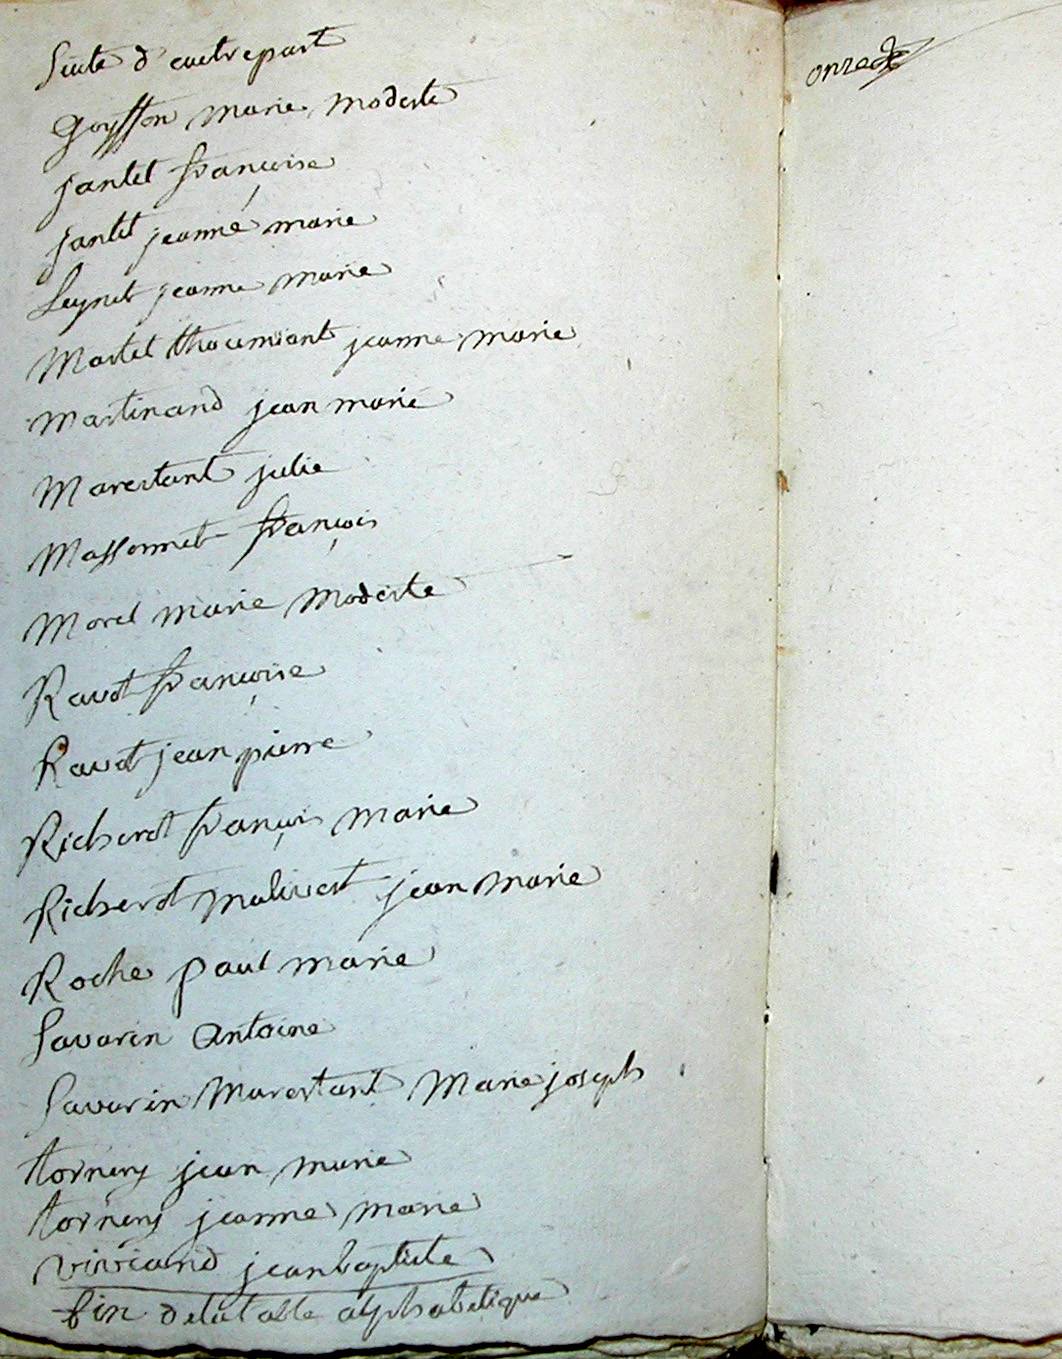 Suite d'autrepart
Goyffon marie modeste
jantet françoise
jantet jeanne marie
Leynet jeanne marie
Martel thocumiant jeanne marie
Martinand jean marie
Marestant julie
Massonnet françois
Morel marie modeste
Ravot françoise
Ravot jean pierre
Richerot françois marie
Richerot malivert jean marie
Roche paul marie
Savarin Antoine
Savarin Marestant Marie joseph
tornery jean marie
tornery jeanne marie
viviand jean baptiste
fin de la table alphabetique
onze